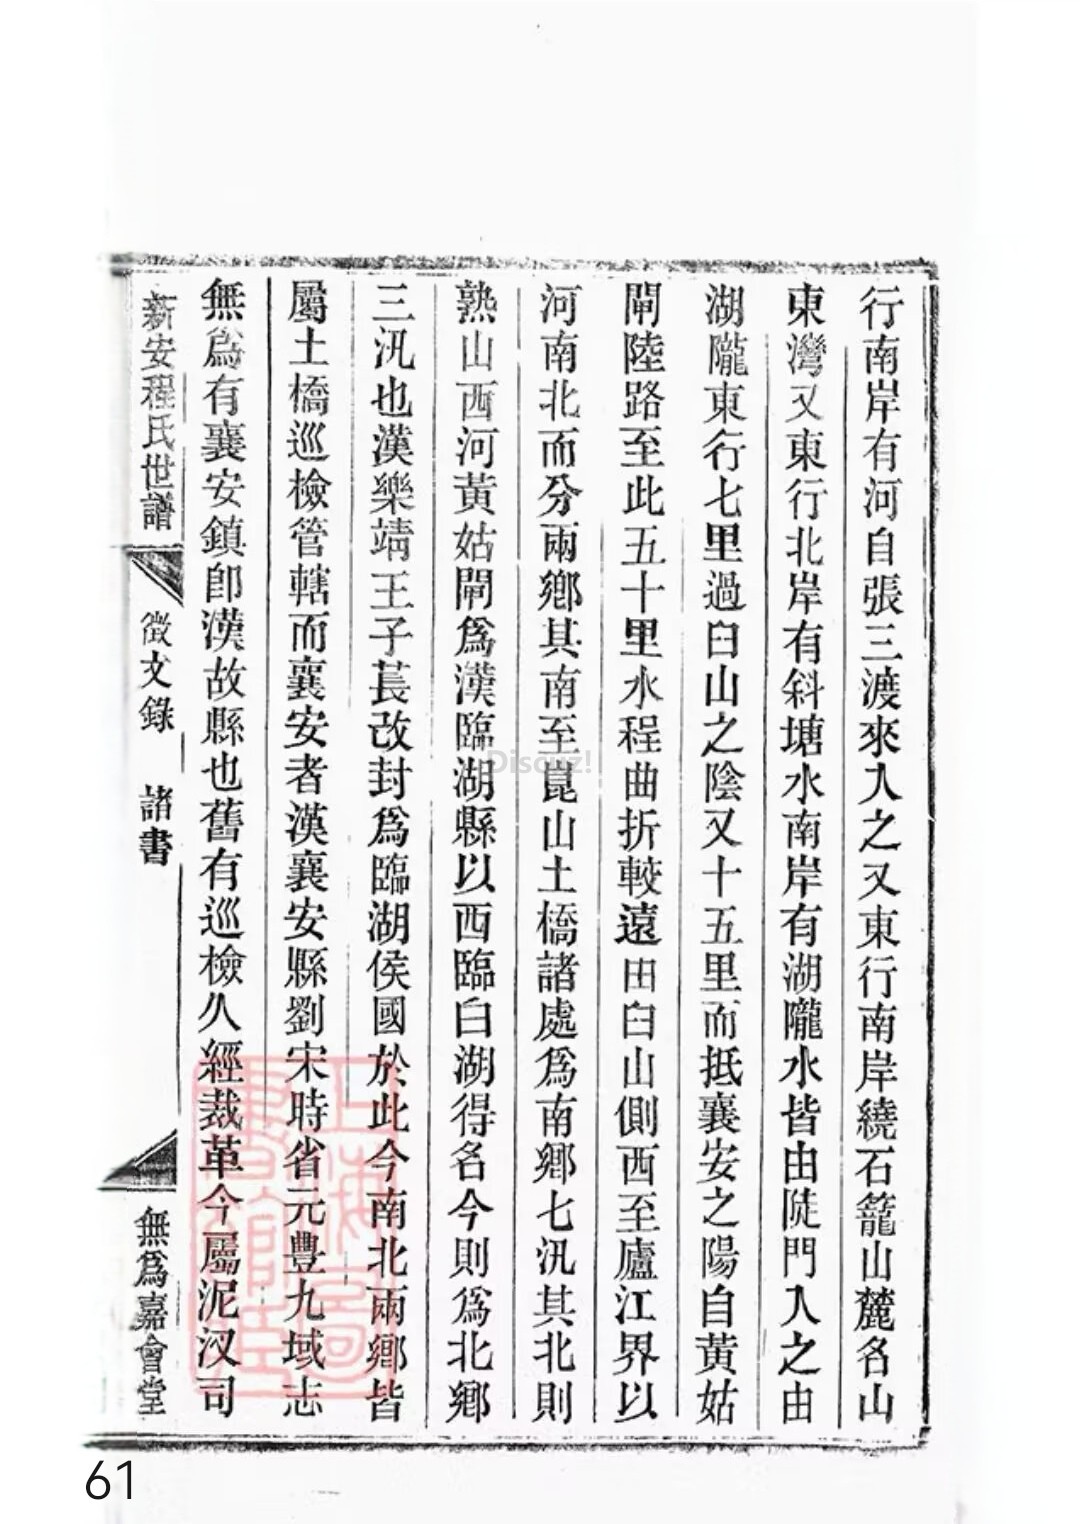 行南岸有河自張三渡來入之又東行南岸繞石籠山麓名山
東灣又東行北岸有斜塘水南岸有湖隴水皆由陡門入之由
湖隴東行七里過臼山之陰又十五里而抵襄安之陽自黃姑
閘陸路至此五十里水程曲折較遠田臼山側西至廬江界以
河南北而分兩鄉其南至崑山土橋諸處為南鄉七汛其北則
熟山西河黃姑閘為漢臨湖縣以西臨白湖得名今則為北鄉
三汛也漢樂靖王子萇改封為臨湖侯國於此今南北兩鄉皆
屬土橋巡檢管轄而襄安者漢襄安縣劉宋時省元豐九域志
無為有襄安鎮即漢故縣也舊有巡檢久經裁革今屬泥汊司
新安程氏世譜 徵文錄 諸書 無為嘉會堂
上海圖書館藏
Discuz!
61